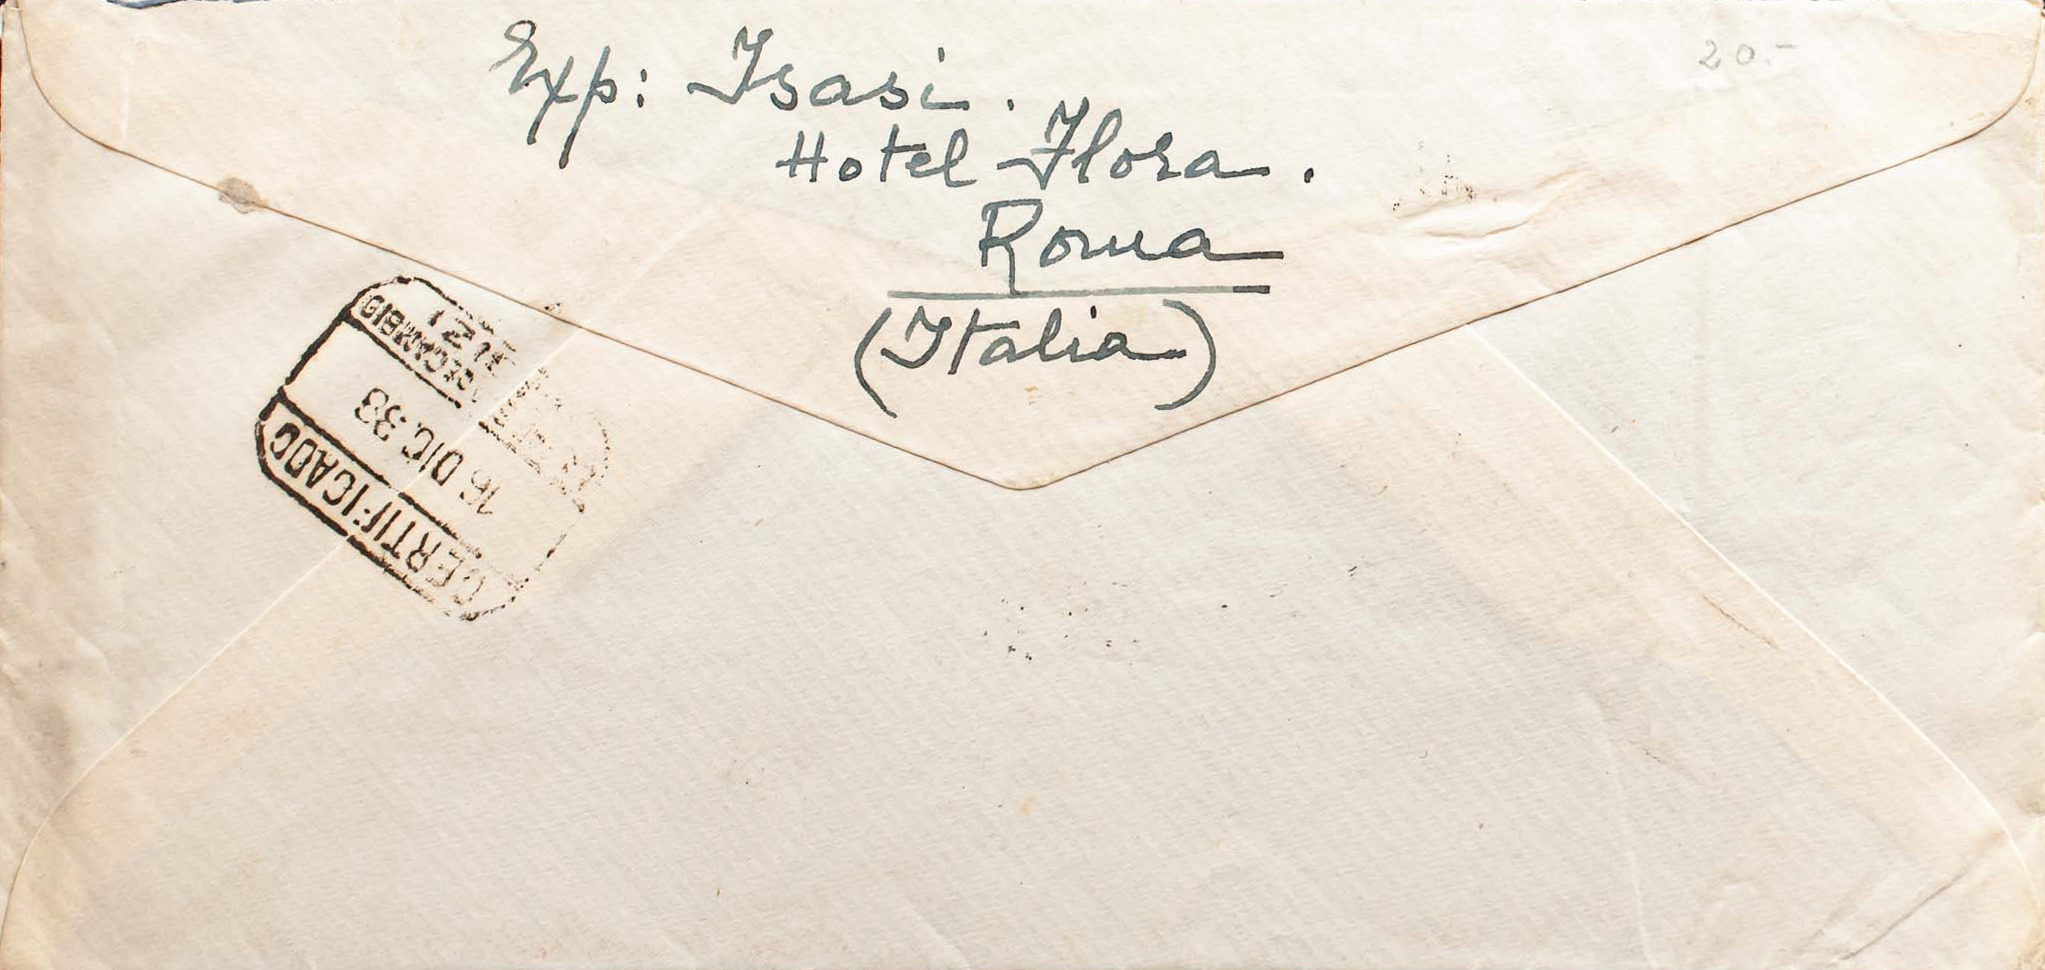 20.-
Exp: Isasi.
Hotel Flora.
Roma
(Italia)
CERTIFICADO
16 DIC. 33